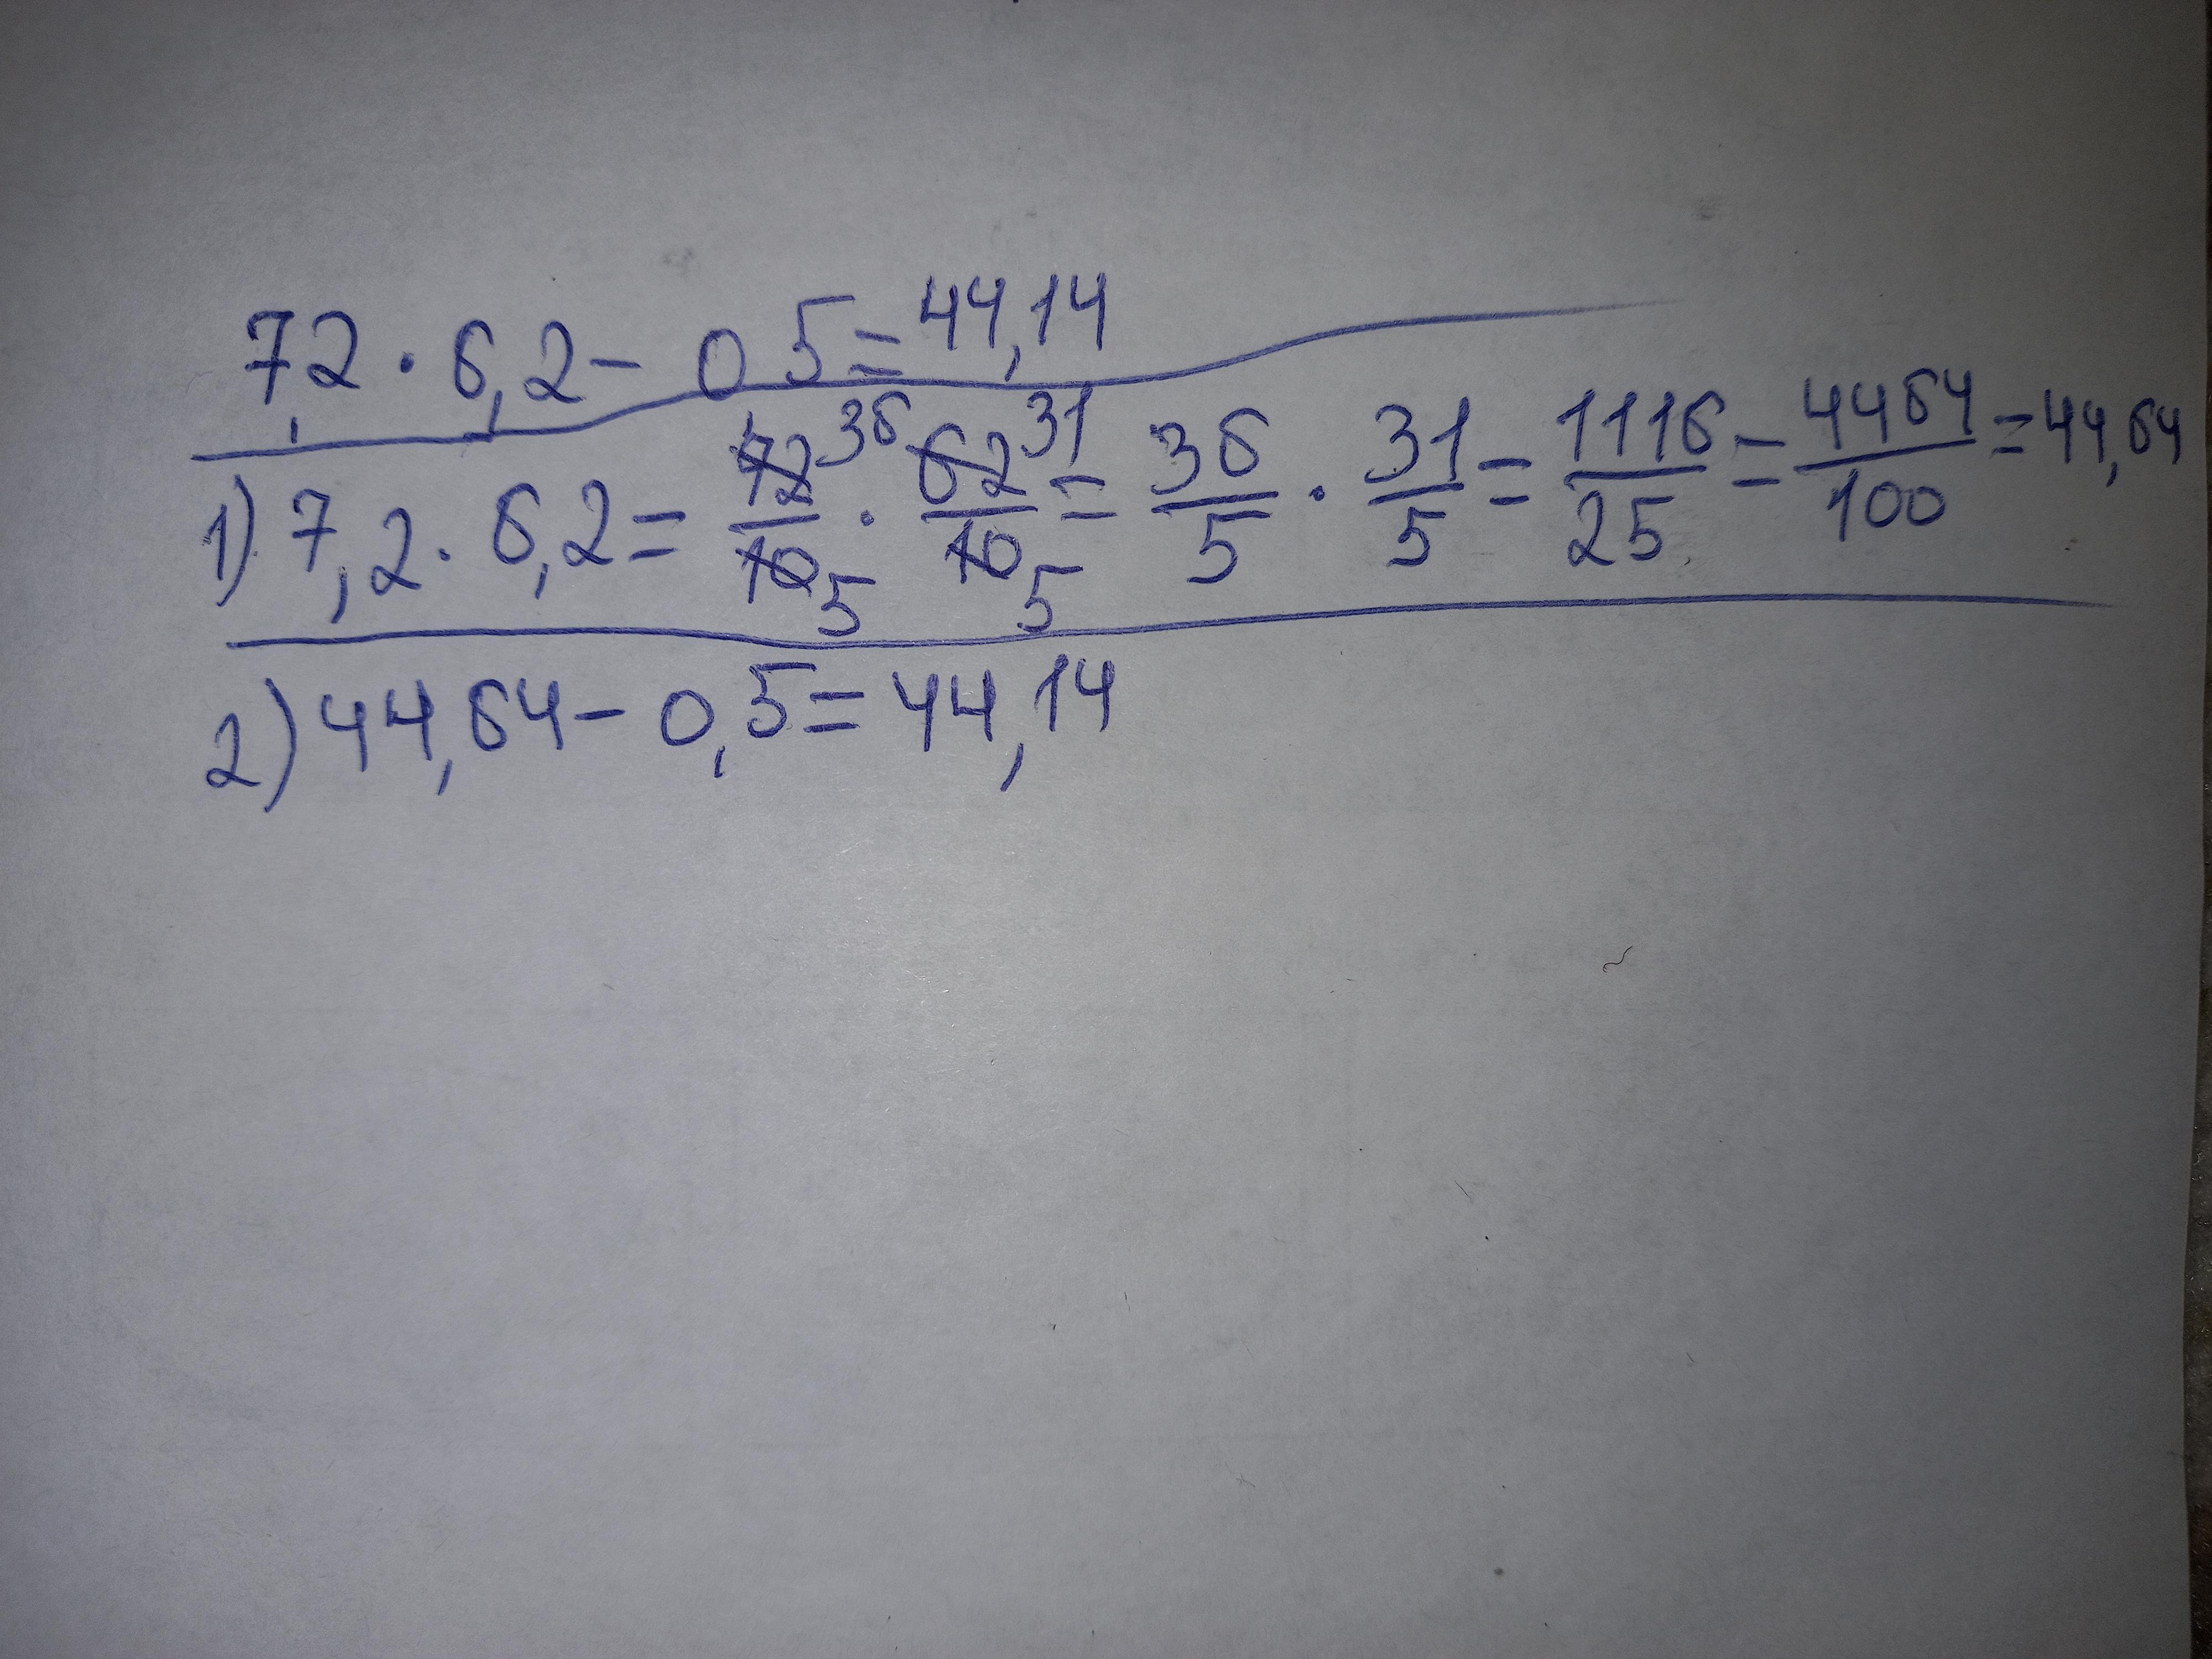 7,2 · 6,2 - 0 5 = 44,14
1) 7,2 · 6,2 = 72/10 36/5 · 62/10 31/5 = 36/5 · 31/5 = 1116/25 = 4464/100 = 44,64
2) 44,64 - 0,5 = 44,14